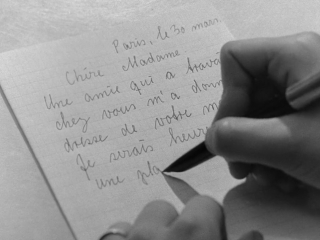 Paris, le 30 mars
Chère Madame
Une amie qui a travai
chez vous m'a donn
dresse de votre m
Je serais heure
une pla